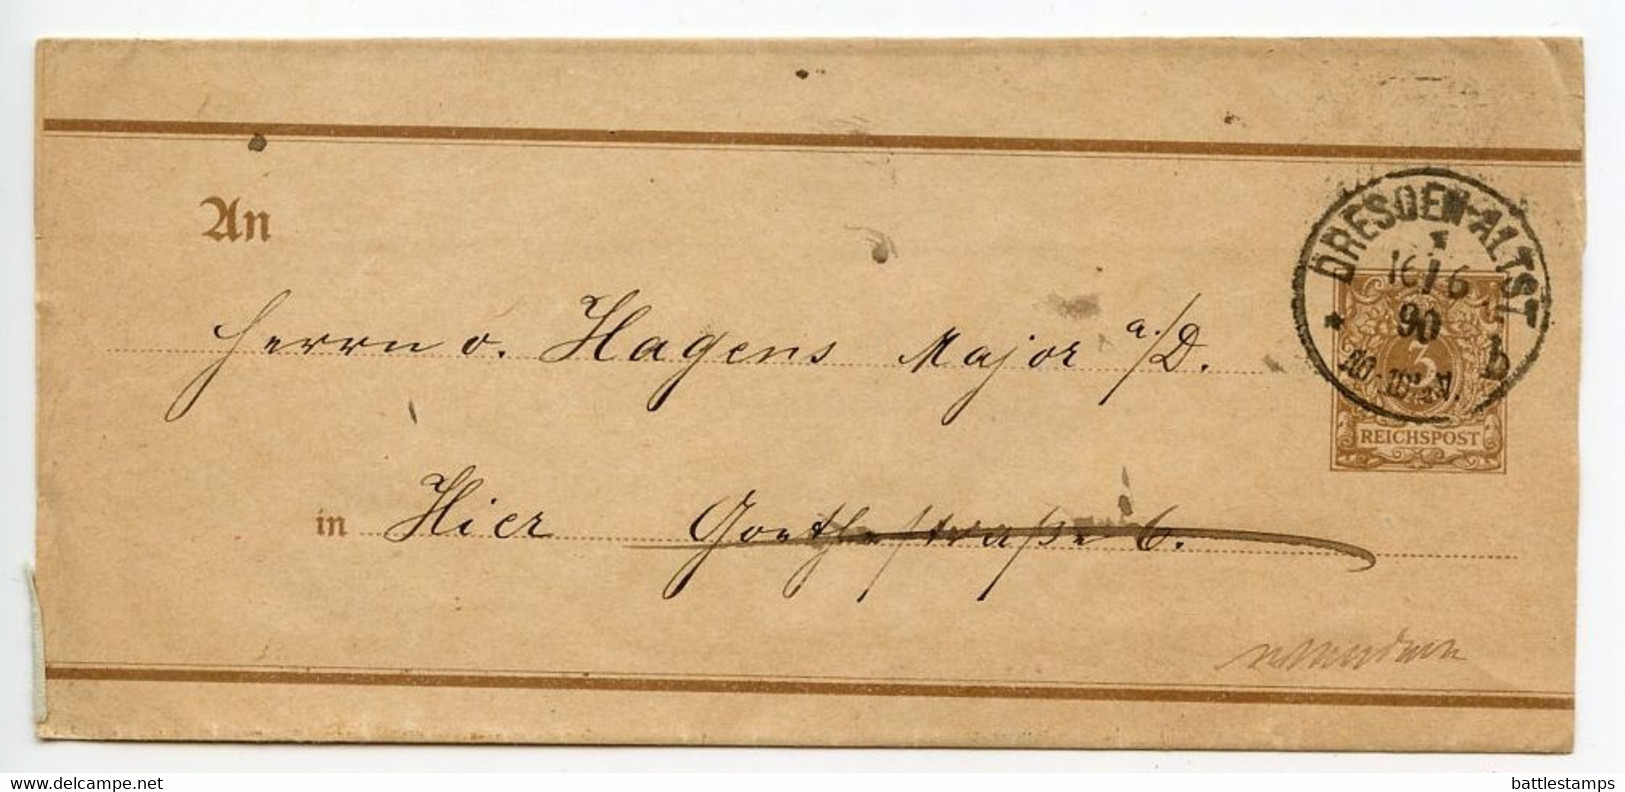 An
Herrn v. Hagens Major a./D.
in Hier Goethestraße 6.
DRESDEN-ALTST.
1
16/6
90
10-11V.
b
3
REICHSPOST
www.delcampe.net
battlestamps